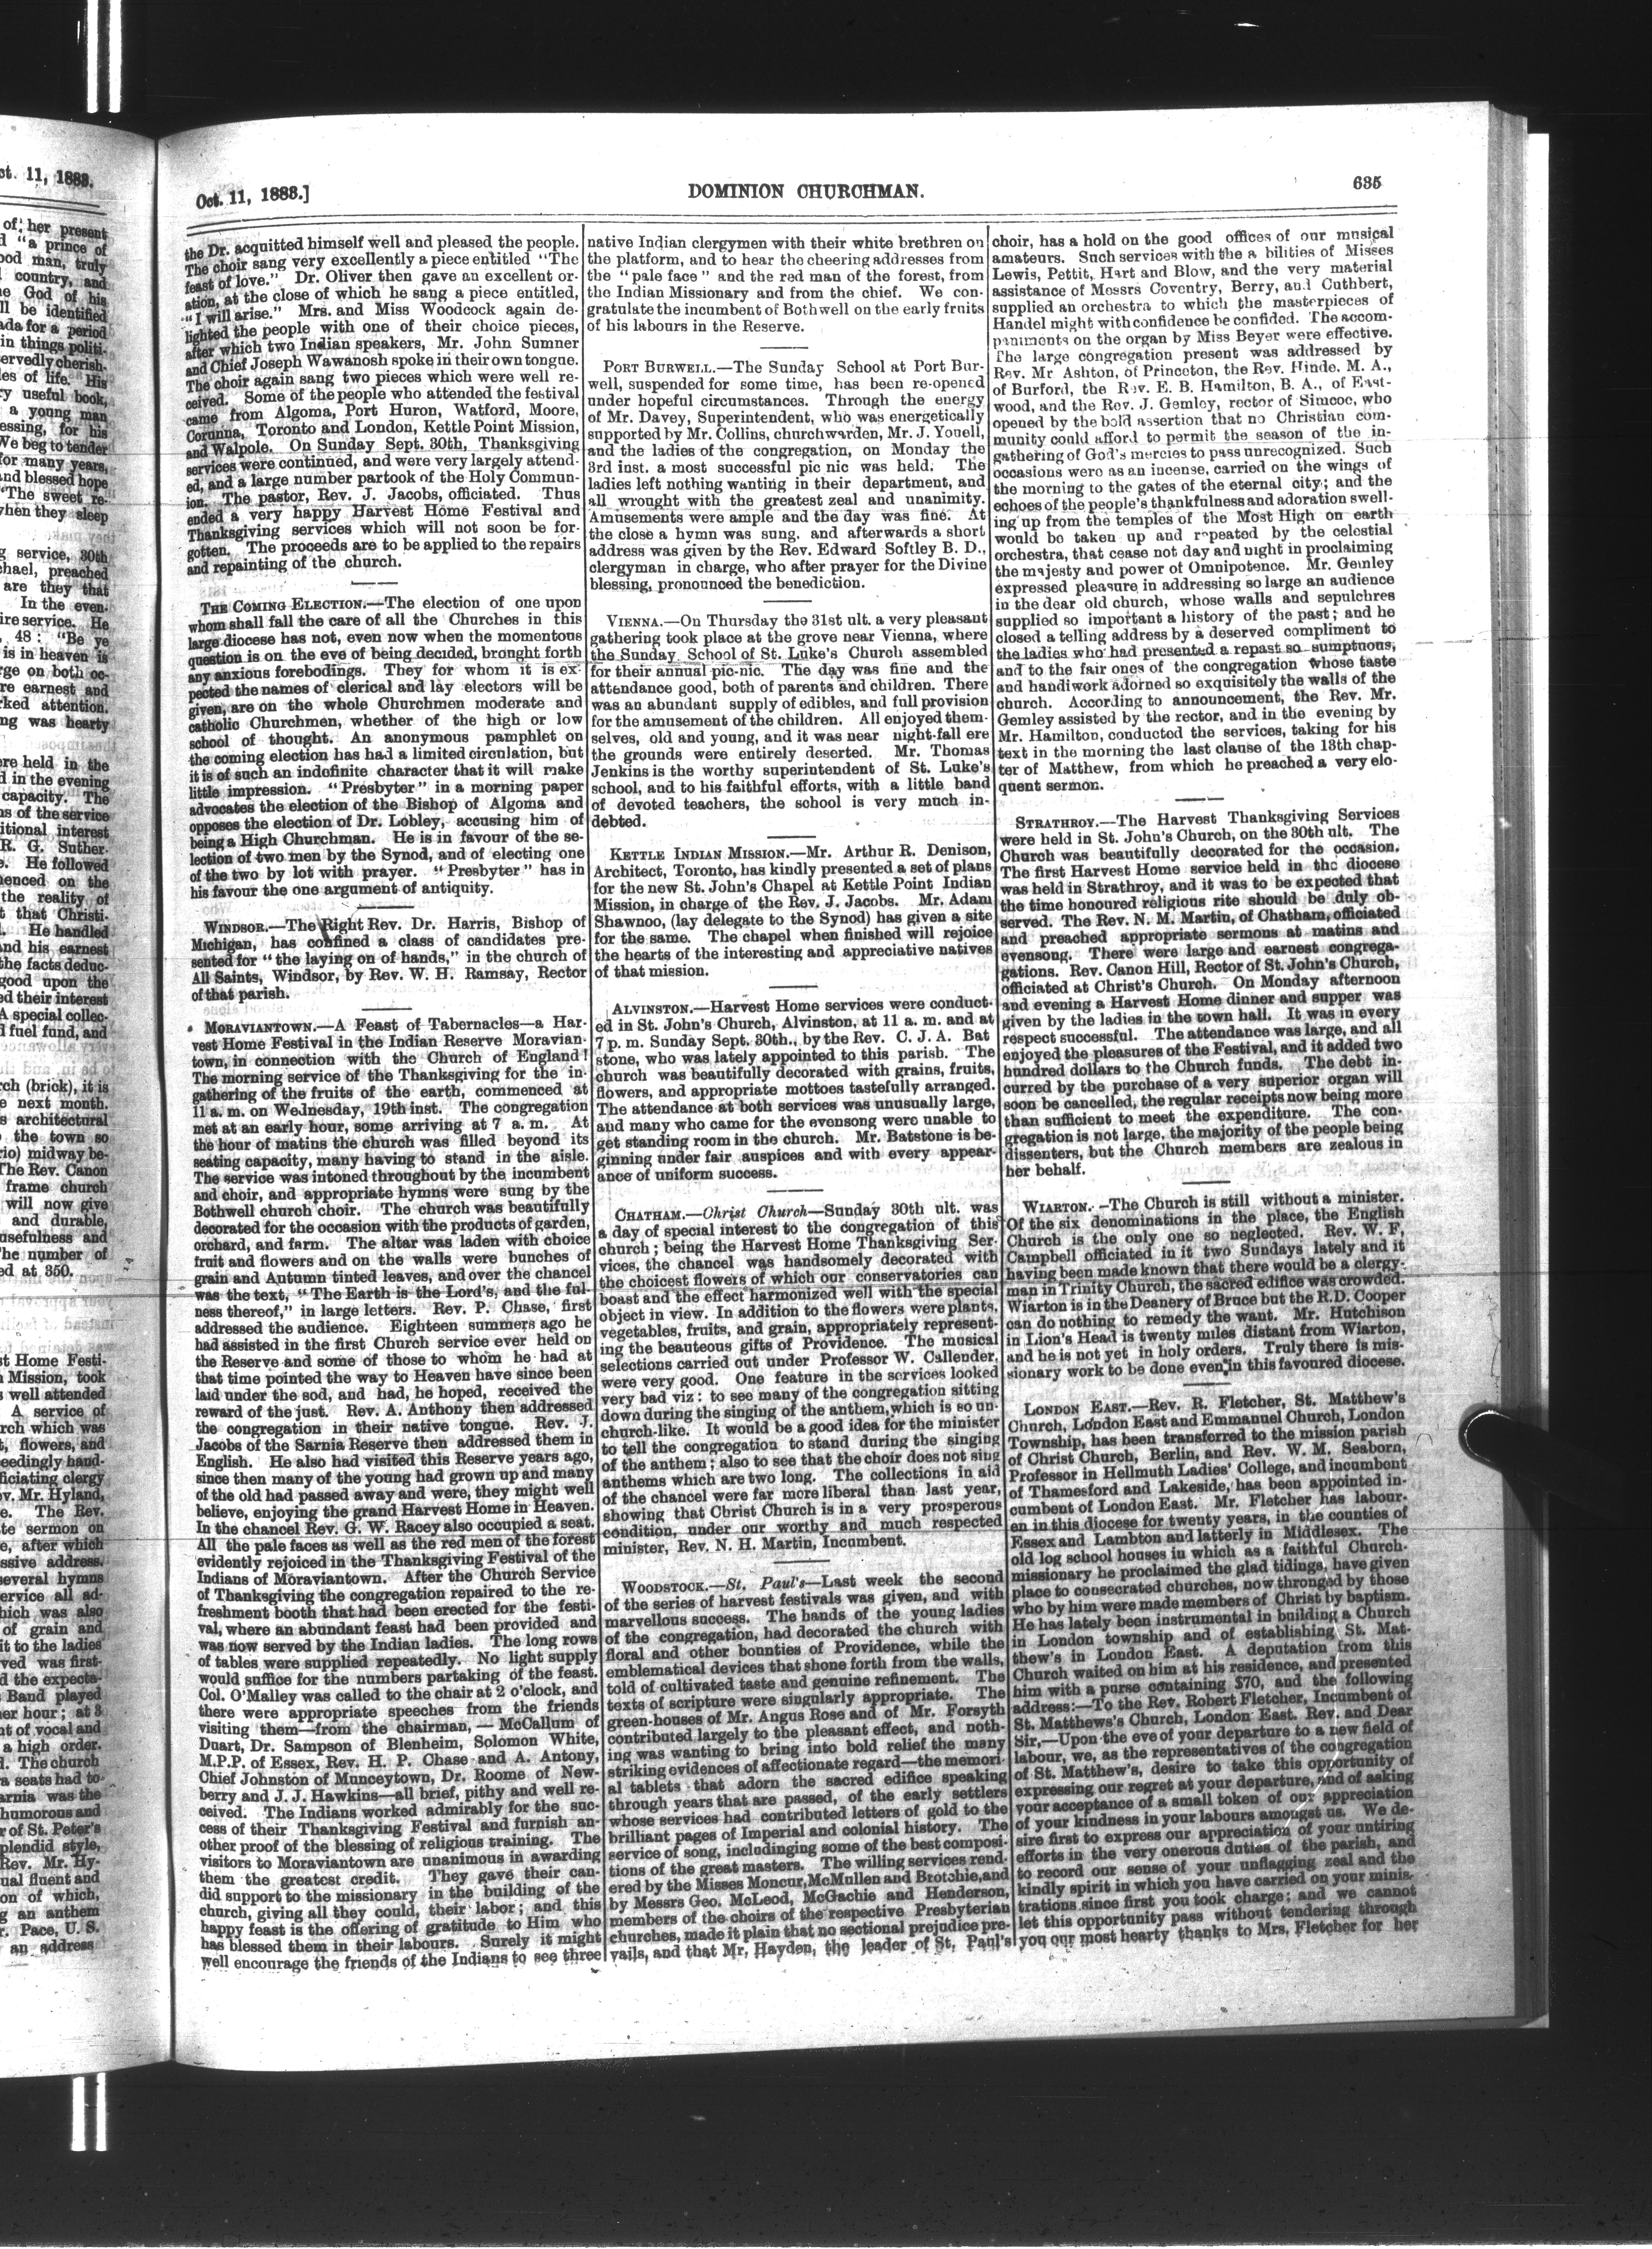 ct. 11, 1883.
of her present
d "a prince of
ood man, truly
country, and
e God of his
ll be identified
ada for a period
in things politi-
servedly cherish-
les of life. His
y useful book,
a young man
essing, for his
We beg to tender
for many years,
and blessed hope
"The sweet re-
when they sleep
g service, 30th
chael, preached
are they that
In the even-
ire service. He
, 48: "Be ye
is in heaven is
rge on both oc-
re earnest and
rked attention.
ng was hearty
ere held in the
d in the evening
capacity. The
ns of the service
itional interest
R. G. Suther-
e. He followed
enced on the
the reality of
t that Christi-
l. He handled
and his earnest
the facts deduc-
good upon the
ed their interest
A special collec-
l fuel fund, and
rch (brick), it is
e next month.
s architectural
the town so
rio) midway be-
The Rev. Canon
frame church
will now give
and durable,
usefulness and
he number of
ed at 350.
st Home Festi-
Mission, took
s well attended
A service of
rch which was
t, flowers, and
eedingly hand-
ficiating clergy
v. Mr. Hyland,
e. The Rev.
te sermon on
e, after which
ssive address.
several hymns
ervice all ad-
hich was also
of grain and
it to the ladies
ved was first-
d the expecta-
Band played
er hour; at 3
nt of vocal and
a high order.
l. The church
a seats had to
arnia was the
humorous and
r of St. Peter's
plendid style,
Rev. Mr. Hy-
ual fluent and
on of which,
g an anthem
r. Pace, U. S.
an address
Oct. 11, 1883.]
DOMINION CHURCHMAN.
635
the Dr. acquitted himself well and pleased the people.
The choir sang very excellently a piece entitled "The
feast of love." Dr. Oliver then gave an excellent or-
ation, at the close of which he sang a piece entitled,
"I will arise." Mrs. and Miss Woodcock again de-
lighted the people with one of their choice pieces,
after which two Indian speakers, Mr. John Sumner
and Chief Joseph Wawanosh spoke in their own tongue.
The choir again sang two pieces which were well re-
ceived. Some of the people who attended the festival
came from Algoma, Port Huron, Watford, Moore,
Corunna, Toronto and London, Kettle Point Mission,
and Walpole. On Sunday Sept. 30th, Thanksgiving
services were continued, and were very largely attend-
ed, and a large number partook of the Holy Commun-
ion. The pastor, Rev. J. Jacobs, officiated. Thus
ended a very happy Harvest Home Festival and
Thanksgiving services which will not soon be for-
gotten. The proceeds are to be applied to the repairs
and repainting of the church.
THE COMING ELECTION.—The election of one upon
whom shall fall the care of all the Churches in this
large diocese has not, even now when the momentous
question is on the eve of being decided, brought forth
any anxious forebodings. They for whom it is ex-
pected the names of clerical and lay electors will be
given, are on the whole Churchmen moderate and
catholic Churchmen, whether of the high or low
school of thought. An anonymous pamphlet on
the coming election has had a limited circulation, but
it is of such an indefinite character that it will make
little impression. "Presbyter" in a morning paper
advocates the election of the Bishop of Algoma and
opposes the election of Dr. Lobley, accusing him of
being a High Churchman. He is in favour of the se-
lection of two men by the Synod, and of electing one
of the two by lot with prayer. "Presbyter" has in
his favour the one argument of antiquity.
WINDSOR.—The Right Rev. Dr. Harris, Bishop of
Michigan, has confined a class of candidates pre-
sented for "the laying on of hands," in the church of
All Saints, Windsor, by Rev. W. H. Ramsay, Rector
of that parish.
MORAVIANTOWN.—A Feast of Tabernacles—a Har-
vest Home Festival in the Indian Reserve Moravian-
town, in connection with the Church of England!
The morning service of the Thanksgiving for the in-
gathering of the fruits of the earth, commenced at
11 a. m. on Wednesday, 19th inst. The congregation
met at an early hour, some arriving at 7 a. m. At
the hour of matins the church was filled beyond its
seating capacity, many having to stand in the aisle.
The service was intoned throughout by the incumbent
and choir, and appropriate hymns were sung by the
Bothwell church choir. The church was beautifully
decorated for the occasion with the products of garden,
orchard, and farm. The altar was laden with choice
fruit and flowers and on the walls were bunches of
grain and Autumn tinted leaves, and over the chancel
was the text, "The Earth is the Lord's, and the ful-
ness thereof," in large letters. Rev. P. Chase, first
addressed the audience. Eighteen summers ago he
had assisted in the first Church service ever held on
the Reserve and some of those to whom he had at
that time pointed the way to Heaven have since been
laid under the sod, and had, he hoped, received the
reward of the just. Rev. A. Anthony then addressed
the congregation in their native tongue. Rev. J.
Jacobs of the Sarnia Reserve then addressed them in
English. He also had visited this Reserve years ago,
since then many of the young had grown up and many
of the old had passed away and were, they might well
believe, enjoying the grand Harvest Home in Heaven.
In the chancel Rev. G. W. Racey also occupied a seat.
All the pale faces as well as the red men of the forest
evidently rejoiced in the Thanksgiving Festival of the
Indians of Moraviantown. After the Church Service
of Thanksgiving the congregation repaired to the re-
freshment booth that had been erected for the festi-
val, where an abundant feast had been provided and
was now served by the Indian ladies. The long rows
of tables were supplied repeatedly. No light supply
would suffice for the numbers partaking of the feast.
Col. O'Malley was called to the chair at 2 o'clock, and
there were appropriate speeches from the friends
visiting them—from the chairman, — McCallum of
Duart, Dr. Sampson of Blenheim, Solomon White,
M.P.P. of Essex, Rev. H. P. Chase and A. Antony,
Chief Johnston of Munceytown, Dr. Roome of New-
berry and J. J. Hawkins—all brief, pithy and well re-
ceived. The Indians worked admirably for the suc-
cess of their Thanksgiving Festival and furnish an-
other proof of the blessing of religious training. The
visitors to Moraviantown are unanimous in awarding
them the greatest credit. They gave their can-
did support to the missionary in the building of the
church, giving all they could, their labor; and this
happy feast is the offering of gratitude to Him who
has blessed them in their labours. Surely it might
well encourage the friends of the Indians to see three
native Indian clergymen with their white brethren on
the platform, and to hear the cheering addresses from
the "pale face" and the red man of the forest, from
the Indian Missionary and from the chief. We con-
gratulate the incumbent of Bothwell on the early fruits
of his labours in the Reserve.
PORT BURWELL.—The Sunday School at Port Bur-
well, suspended for some time, has been re-opened
under hopeful circumstances. Through the energy
of Mr. Davey, Superintendent, who was energetically
supported by Mr. Collins, churchwarden, Mr. J. Youell,
and the ladies of the congregation, on Monday the
3rd inst. a most successful pic nic was held. The
ladies left nothing wanting in their department, and
all wrought with the greatest zeal and unanimity.
Amusements were ample and the day was fine. At
the close a hymn was sung, and afterwards a short
address was given by the Rev. Edward Softley B. D.,
clergyman in charge, who after prayer for the Divine
blessing, pronounced the benediction.
VIENNA.—On Thursday the 31st ult. a very pleasant
gathering took place at the grove near Vienna, where
the Sunday School of St. Luke's Church assembled
for their annual pic-nic. The day was fine and the
attendance good, both of parents and children. There
was an abundant supply of edibles, and full provision
for the amusement of the children. All enjoyed them-
selves, old and young, and it was near night-fall ere
the grounds were entirely deserted. Mr. Thomas
Jenkins is the worthy superintendent of St. Luke's
school, and to his faithful efforts, with a little band
of devoted teachers, the school is very much in-
debted.
KETTLE INDIAN MISSION.—Mr. Arthur R. Denison,
Architect, Toronto, has kindly presented a set of plans
for the new St. John's Chapel at Kettle Point Indian
Mission, in charge of the Rev. J. Jacobs. Mr. Adam
Shawnoo, (lay delegate to the Synod) has given a site
for the same. The chapel when finished will rejoice
the hearts of the interesting and appreciative natives
of that mission.
ALVINSTON.—Harvest Home services were conduct-
ed in St. John's Church, Alvinston, at 11 a. m. and at
7 p. m. Sunday Sept. 30th., by the Rev. C. J. A. Bat
stone, who was lately appointed to this parish. The
church was beautifully decorated with grains, fruits,
flowers, and appropriate mottoes tastefully arranged.
The attendance at both services was unusually large,
and many who came for the evensong were unable to
get standing room in the church. Mr. Batstone is be-
ginning under fair auspices and with every appear-
ance of uniform success.
CHATHAM.—Christ Church—Sunday 30th ult. was
a day of special interest to the congregation of this
church; being the Harvest Home Thanksgiving Ser-
vices, the chancel was handsomely decorated with
the choicest flowers of which our conservatories can
boast and the effect harmonized well with the special
object in view. In addition to the flowers were plants,
vegetables, fruits, and grain, appropriately represent-
ing the beauteous gifts of Providence. The musical
selections carried out under Professor W. Callender,
were very good. One feature in the services looked
very bad viz: to see many of the congregation sitting
down during the singing of the anthem, which is so un-
church-like. It would be a good idea for the minister
to tell the congregation to stand during the singing
of the anthem; also to see that the choir does not sing
anthems which are two long. The collections in aid
of the chancel were far more liberal than last year,
showing that Christ Church is in a very prosperous
condition, under our worthy and much respected
minister, Rev. N. H. Martin, Incumbent.
WOODSTOCK.—St. Paul's—Last week the second
of the series of harvest festivals was given, and with
marvellous success. The hands of the young ladies
of the congregation, had decorated the church with
floral and other bounties of Providence, while the
emblematical devices that shone forth from the walls,
told of cultivated taste and genuine refinement. The
texts of scripture were singularly appropriate. The
green-houses of Mr. Angus Rose and of Mr. Forsyth
contributed largely to the pleasant effect, and noth-
ing was wanting to bring into bold relief the many
striking evidences of affectionate regard—the memori-
al tablets that adorn the sacred edifice speaking
through years that are passed, of the early settlers
whose services had contributed letters of gold to the
brilliant pages of Imperial and colonial history. The
service of song, includinging some of the best composi-
tions of the great masters. The willing services rend-
ered by the Misses Moncur, McMullen and Brotchie, and
by Messrs Geo. McLeod, McGachie and Henderson,
members of the choirs of the respective Presbyterian
churches, made it plain that no sectional prejudice pre-
vails, and that Mr, Hayden, the leader of St. Paul's
choir, has a hold on the good offices of our musical
amateurs. Such services with the a bilities of Misses
Lewis, Pettit, Hart and Blow, and the very material
assistance of Messrs Coventry, Berry, and Cuthbert,
supplied an orchestra to which the masterpieces of
Handel might with confidence be confided. The accom-
paniments on the organ by Miss Beyer were effective.
The large congregation present was addressed by
Rev. Mr Ashton, of Princeton, the Rev. Hinde. M. A.,
of Burford, the Rev. E. B. Hamilton, B. A., of East-
wood, and the Rev. J. Gemley, rector of Simcoe, who
opened by the bold assertion that no Christian com-
munity could afford to permit the season of the in-
gathering of God's mercies to pass unrecognized. Such
occasions were as an incense, carried on the wings of
the morning to the gates of the eternal city; and the
echoes of the people's thankfulness and adoration swell-
ing up from the temples of the Most High on earth
would be taken up and repeated by the celestial
orchestra, that cease not day and night in proclaiming
the majesty and power of Omnipotence. Mr. Gemley
expressed pleasure in addressing so large an audience
in the dear old church, whose walls and sepulchres
supplied so important a history of the past; and he
closed a telling address by a deserved compliment to
the ladies who had presented a repast so sumptuous,
and to the fair ones of the congregation whose taste
and handiwork adorned so exquisitely the walls of the
church. According to announcement, the Rev. Mr.
Gemley assisted by the rector, and in the evening by
Mr. Hamilton, conducted the services, taking for his
text in the morning the last clause of the 13th chap-
ter of Matthew, from which he preached a very elo-
quent sermon.
STRATHROY.—The Harvest Thanksgiving Services
were held in St. John's Church, on the 30th ult. The
Church was beautifully decorated for the occasion.
The first Harvest Home service held in the diocese
was held in Strathroy, and it was to be expected that
the time honoured religious rite should be duly ob-
served. The Rev. N. M. Martin, of Chatham, officiated
and preached appropriate sermons at matins and
evensong. There were large and earnest congrega-
gations. Rev. Canon Hill, Rector of St. John's Church,
officiated at Christ's Church. On Monday afternoon
and evening a Harvest Home dinner and supper was
given by the ladies in the town hall. It was in every
respect successful. The attendance was large, and all
enjoyed the pleasures of the Festival, and it added two
hundred dollars to the Church funds. The debt in-
curred by the purchase of a very superior organ will
soon be cancelled, the regular receipts now being more
than sufficient to meet the expenditure. The con-
gregation is not large, the majority of the people being
dissenters, but the Church members are zealous in
her behalf.
WIARTON.—The Church is still without a minister.
Of the six denominations in the place, the English
Church is the only one so neglected. Rev. W. F,
Campbell officiated in it two Sundays lately and it
having been made known that there would be a clergy-
man in Trinity Church, the sacred edifice was crowded.
Wiarton is in the Deanery of Bruce but the R.D. Cooper
can do nothing to remedy the want. Mr. Hutchison
in Lion's Head is twenty miles distant from Wiarton,
and he is not yet in holy orders. Truly there is mis-
sionary work to be done even in this favoured diocese.
LONDON EAST.—Rev. R. Fletcher, St. Matthew's
Church, London East and Emmanuel Church, London
Township, has been transferred to the mission parish
of Christ Church, Berlin, and Rev. W. M. Seaborn,
Professor in Hellmuth Ladies' College, and incumbent
of Thamesford and Lakeside, has been appointed in-
cumbent of London East. Mr. Fletcher has labour-
en in this diocese for twenty years, in the counties of
Essex and Lambton and latterly in Middlesex. The
old log school houses in which as a faithful Church-
missionary he proclaimed the glad tidings, have given
place to consecrated churches, now thronged by those
who by him were made members of Christ by baptism.
He has lately been instrumental in building a Church
in London township and of establishing St. Mat-
thew's in London East. A deputation from this
Church waited on him at his residence, and presented
him with a purse containing $70, and the following
address:—To the Rev. Robert Fletcher, Incumbent of
St. Matthews's Church, London East. Rev. and Dear
Sir,—Upon the eve of your departure to a new field of
labour, we, as the representatives of the congregation
of St. Matthew's, desire to take this opportunity of
expressing our regret at your departure, and of asking
your acceptance of a small token of our appreciation
of your kindness in your labours amongst us. We de-
sire first to express our appreciation of your untiring
efforts in the very onerous duties of the parish, and
to record our sense of your unflagging zeal and the
kindly spirit in which you have carried on your minis-
trations since first you took charge; and we cannot
let this opportunity pass without tendering through
you our most hearty thanks to Mrs, Fletcher for her